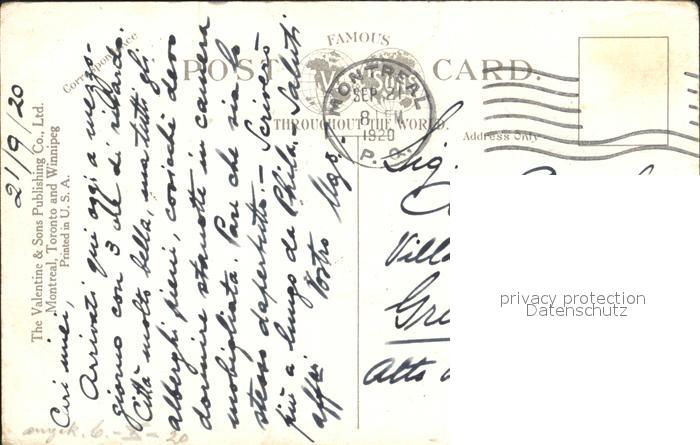 21/9/20
Cari miei,
Arrivati qui oggi a mezzo-
giorno con 3 ore di ritardo.
Città molto bella, ma tutti gli
alberghi pieni, cosicchè devo
dormire stanotte in camera
mobigliata. Pare che sia lo
stesso dapertutto. – Scriverò
più a lungo da Phila. Saluti
affni Vostro
The Valentine & Sons Publishing Co., Ltd.
Montreal, Toronto and Winnipeg
Printed in U. S. A.
Correspondence
FAMOUS
POST CARD.
THROUGHOUT THE WORLD.
MONTREAL
SEP. 21
8
1920
P. Q.
Address Only
Sig.
Villa
Gre
Alto
privacy protection
Datenschutz